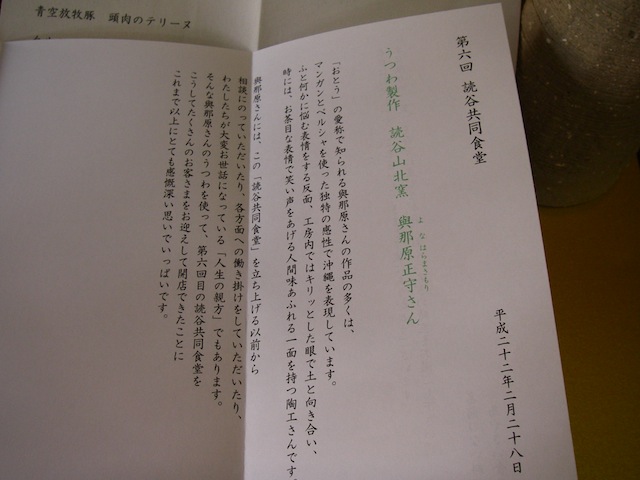 青空放牧豚　頭肉のテリーヌ
第六回　読谷共同食堂
平成二十二年二月二十八日
うつわ製作　読谷山北窯　與那原正守さん
よなはらまさもり
「おとう」の愛称で知られる與那原さんの作品の多くは、
マンガンとペルシャを使った独特の感性で沖縄を表現しています。
ふと何かに悩む表情をする反面、工房内ではキリッとした眼で土と向き合い、
時には、お茶目な表情で笑い声をあげる人間味あふれる一面を持つ陶工さんです
與那原さんには、この「読谷共同食堂」を立ち上げる以前から
相談にのっていただいたり、各方面への働き掛けをしていただいたり、
わたしたちが大変お世話になっている「人生の親方」でもあります。
そんな與那原さんのうつわを使って、第六回目の読谷共同食堂を
こうしてたくさんのお客さまをお迎えして開店できたことに
これまで以上にとても感慨深い思いでいっぱいです。